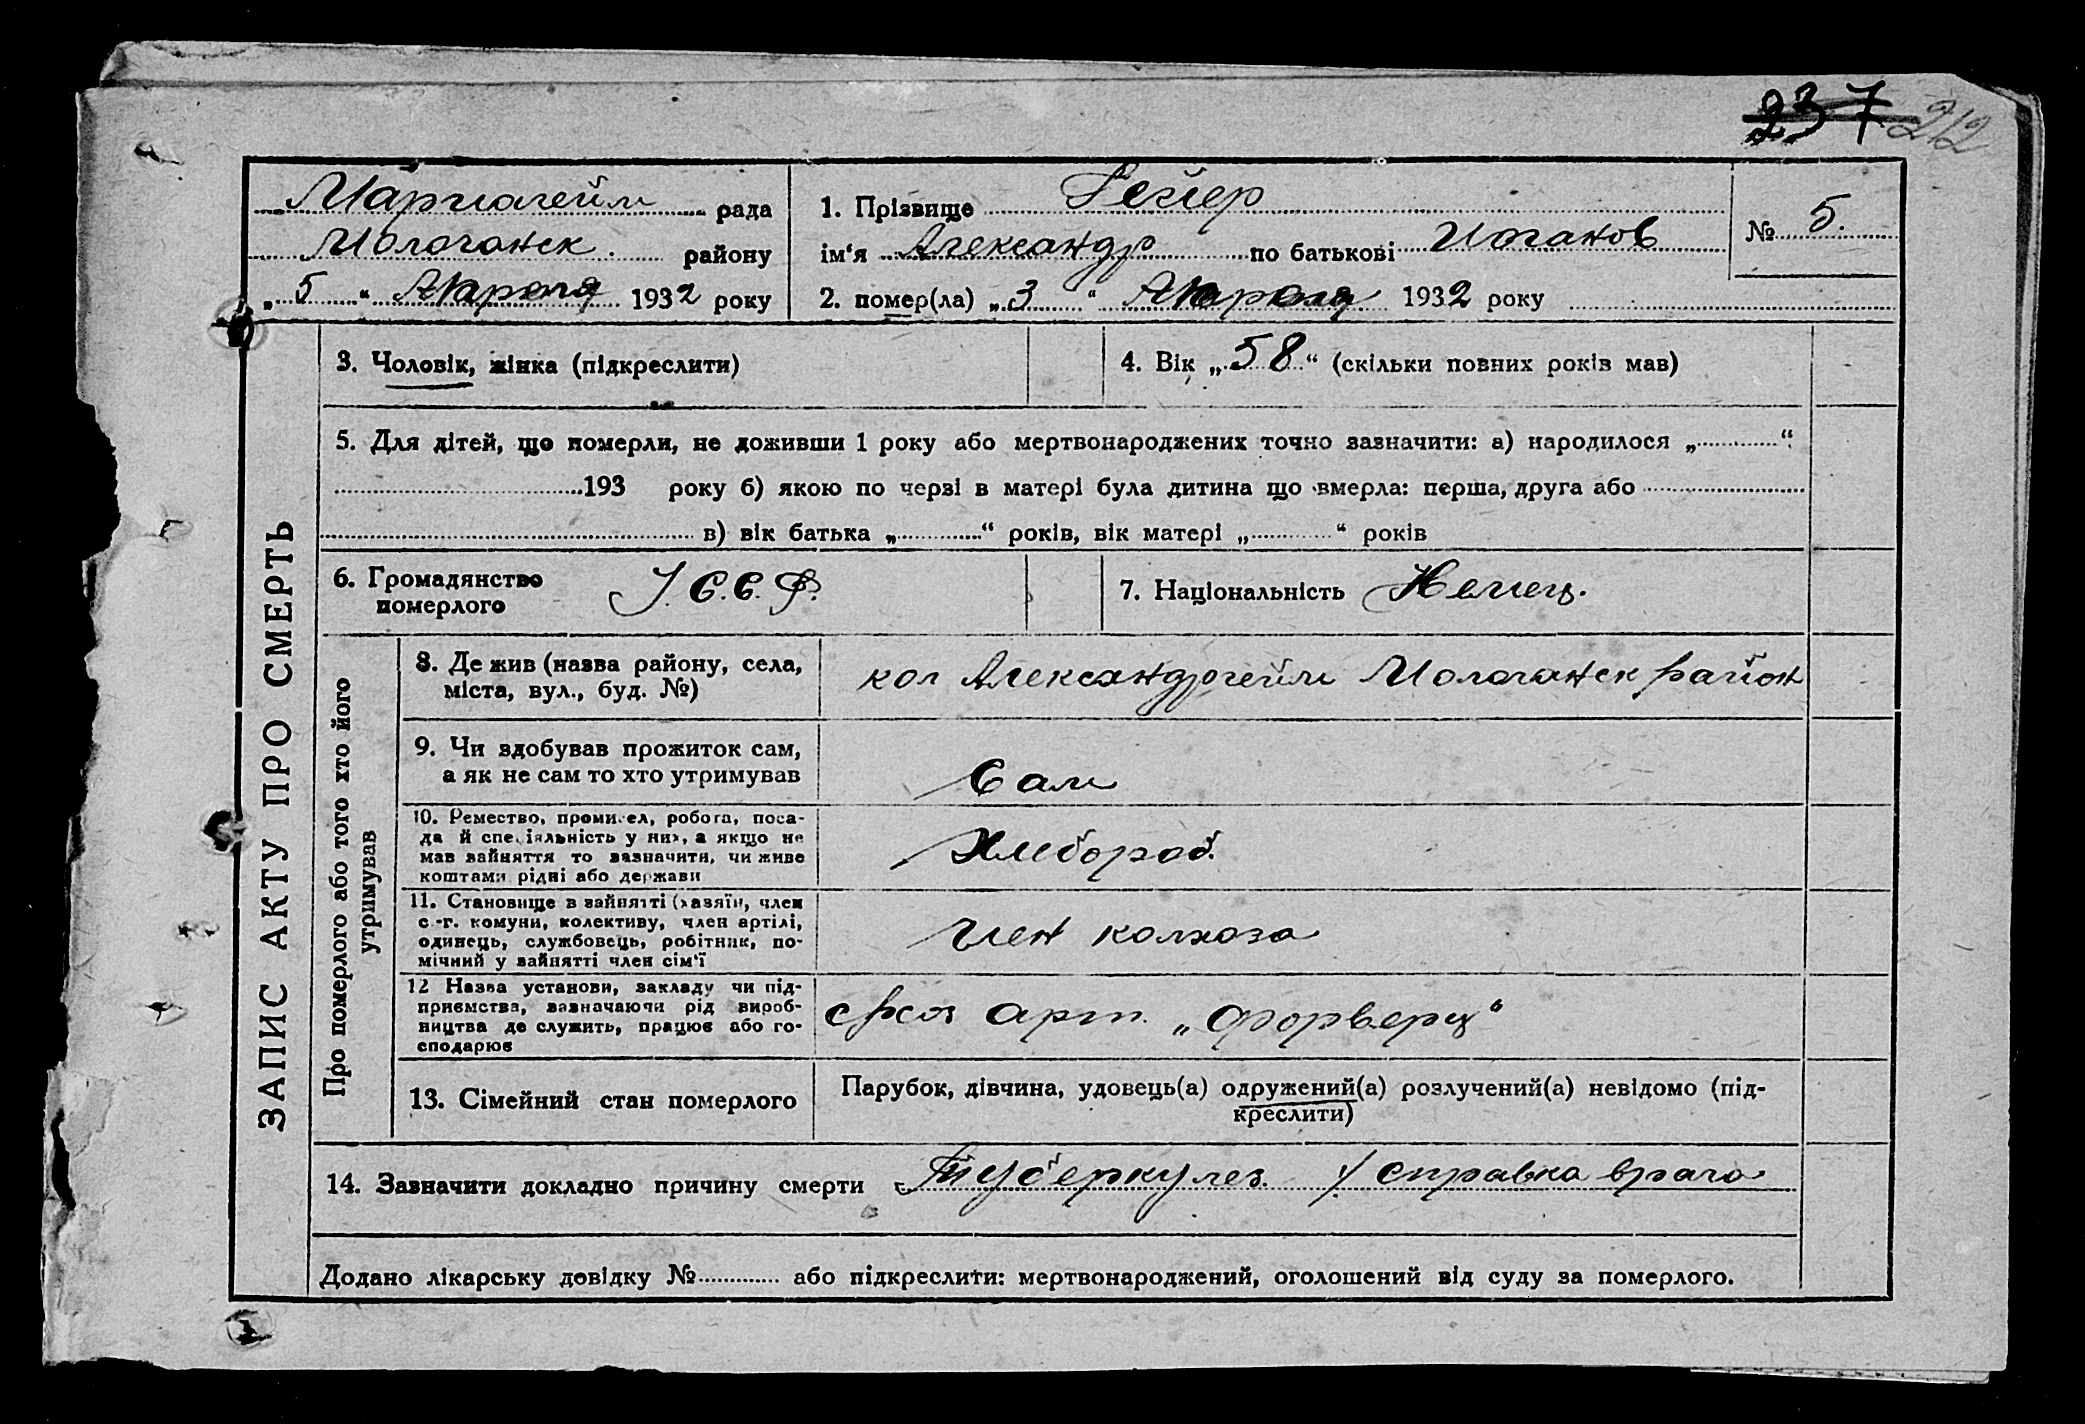 237 212
Маргиогейм рада
Молочанск. району
„5“ Апреля 1932 року
1. Прізвище Гейер
ім‘я Александр по батькові Иоганов
2. помер(ла) „3“ Апреля 1932 року
№ 5.
ЗАПИС АКТУ ПРО СМЕРТЬ
3. Чоловік, жінка (підкреслити)
4. Вік „58“ (скільки повних років мав)
5. Для дітей, що померли, не доживши 1 року або мертвонароджених точно зазначити: а) народилося „ “
193 року б) якою по черзі в матері була дитина що вмерла: перша, друга або
в) вік батька „ “ років, вік матері „ “ років
6. Громадянство
померлого
У.С.С.Р.
7. Національність Немец.
Про померлого або того хто його
утримував
8. Де жив (назва району, села,
міста, вул., буд. №)
кол Александргейм Молочанск район
9. Чи здобував прожиток сам,
а як не сам то хто утримував
Сам
10. Ремество, промисел, робота, поса-
да й спеціяльність у них, а якщо не
мав зайняття то зазначити, чи живе
коштами рідні або держави
Хлебороб.
11. Становище в зайнятті (хазяїн, член
с.-г. комуни, колективу, член артілі,
одинець, службовець, робітник, по-
мічний у зайнятті член сім‘ї
Член колхоза
12 Назва установи, закладу чи під-
приємства, зазначаючи рід вироб-
ництва де служить, працює або го-
сподарює
арт. „Форверц“
13. Сімейний стан померлого
Парубок, дівчина, удовець(а) одружений(а) розлучений(а) невідомо (під-
креслити)
14. Зазначити докладно причину смерти Туберкулез. справка врача
Додано лікарську довідку № або підкреслити: мертвонароджений, оголошений від суду за померлого.